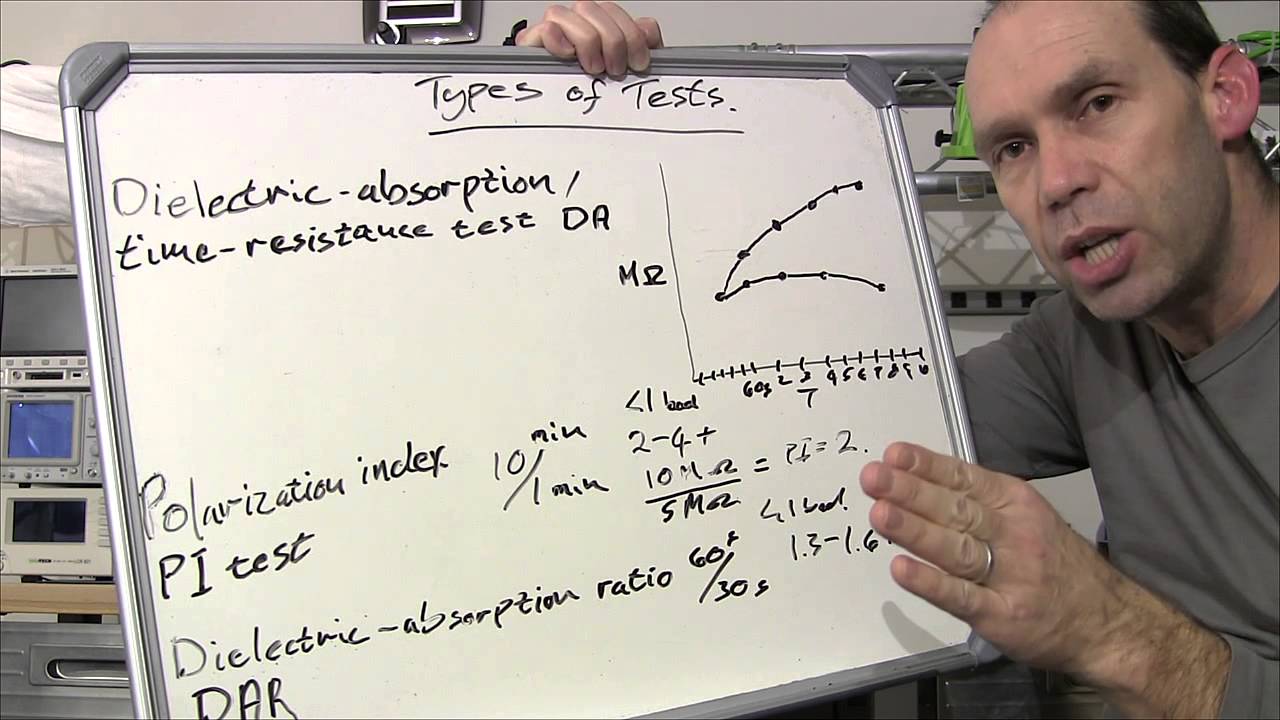 Types of Tests.
Dielectric-absorption/
time-resistance test DA
MΩ
60s 2 3 4 5 6 7 8 9 10
T
<1 bad
2-4+
10 min/1 min
10MΩ/5MΩ = PI=2.
Polarization index
PI test
<1 bad.
1.3-1.6
Dielectric-absorption ratio 60s/30s
DAR